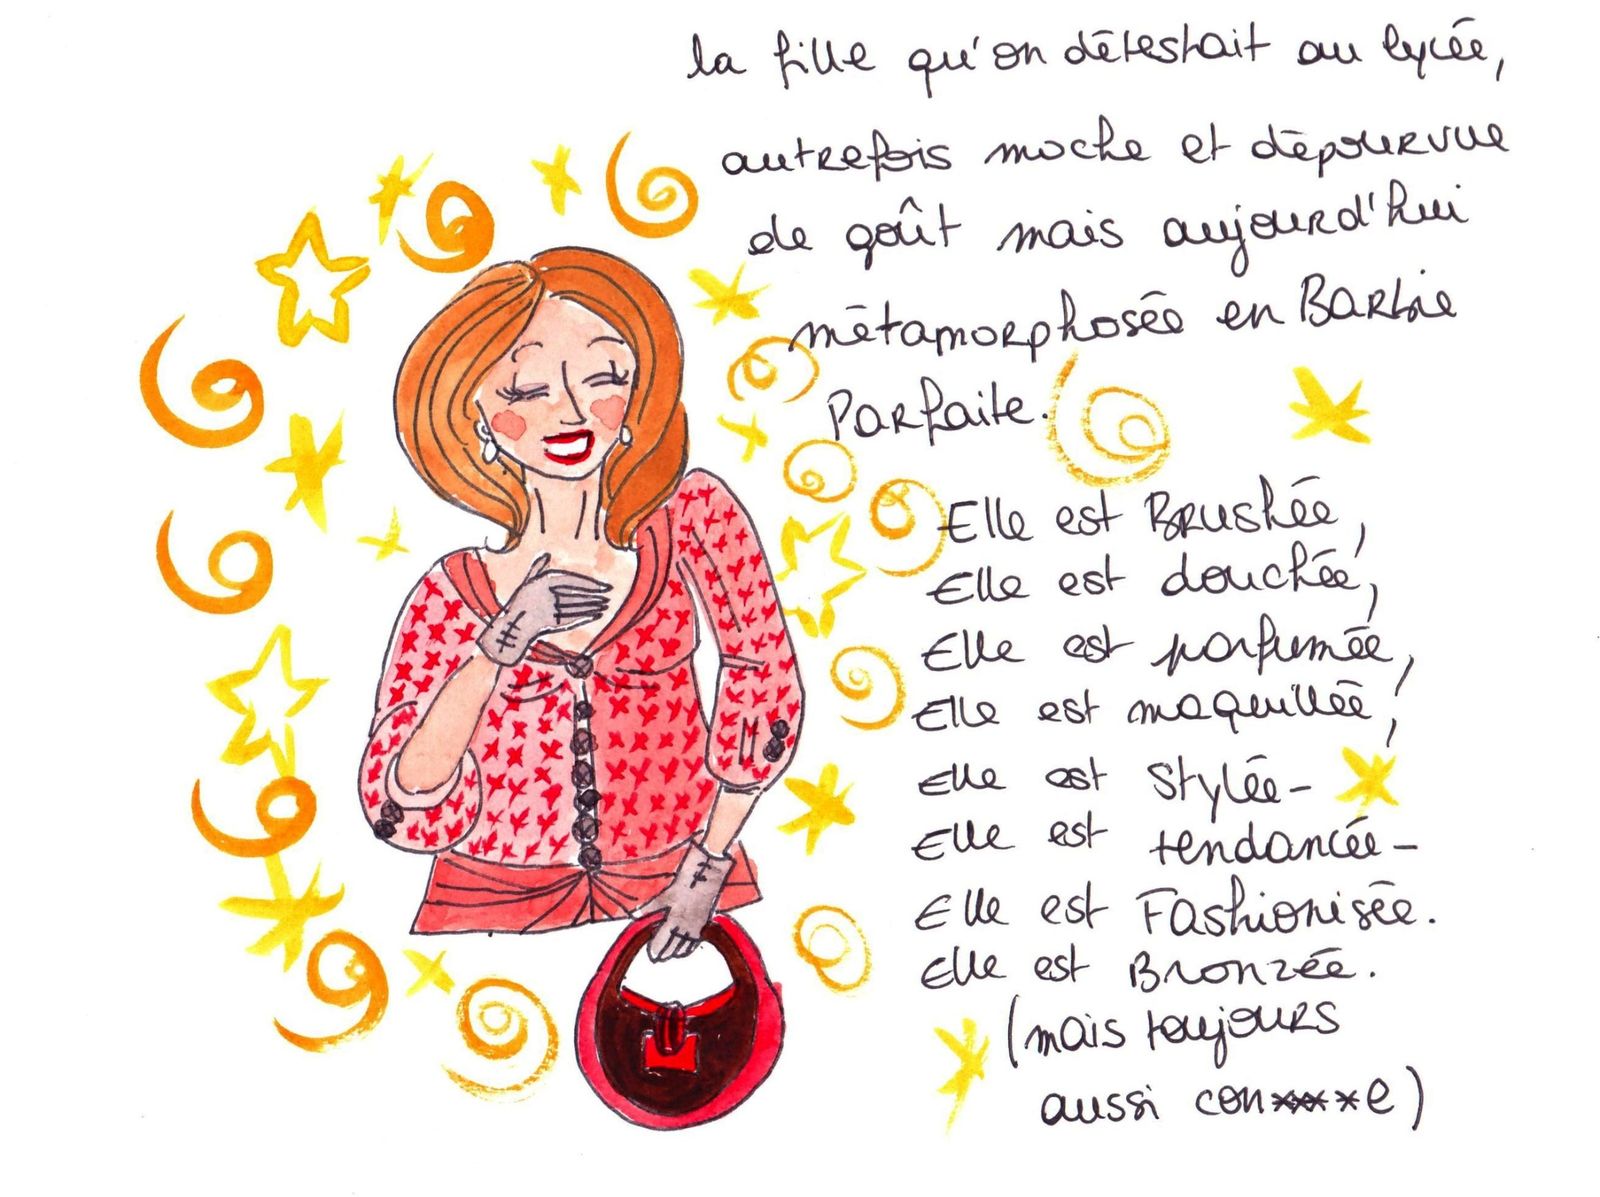 la fille qu'on détestait au lycée,
autrefois moche et dépourvue
de goût mais aujourd'hui
métamorphosée en Barbie
Parfaite.
Elle est Brushée,
Elle est douchée,
Elle est parfumée,
Elle est maquillée,
Elle est stylée-
Elle est tendancée-
Elle est Fashionisée.
Elle est Bronzée.
(mais toujours
aussi con****e)